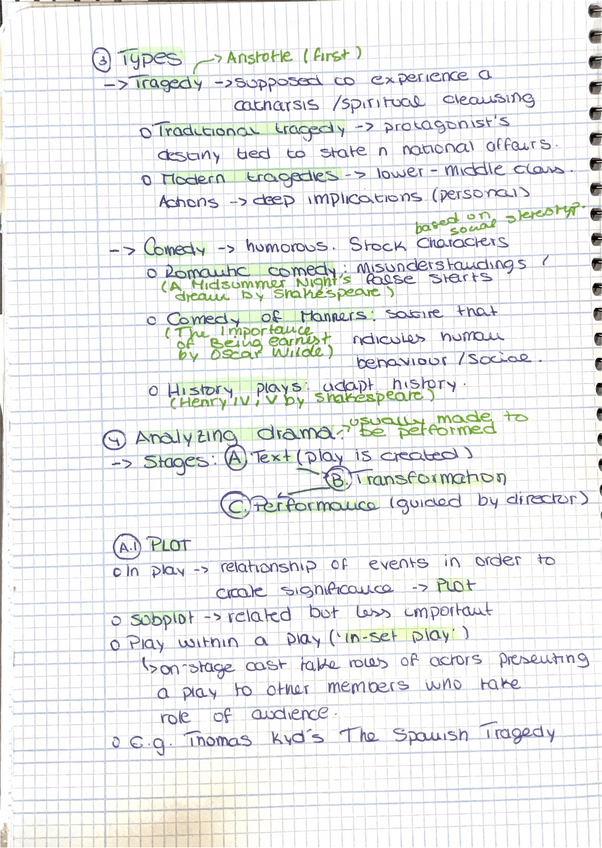 ③ Types -> Aristotle (first)
-> Tragedy -> supposed to experience a
catharsis / spiritual cleansing
o Traditional tragedy -> protagonist's
destiny tied to state n national affairs.
o Modern tragedies -> lower-middle class.
Actions -> deep implications (personal)
based on social stereotyp.
-> Comedy -> humorous. Stock Characters
o Romantic comedy: misunderstandings /
false starts
(A Midsummer Night's
dream by Shakespeare)
o Comedy of Manners: satire that
ridicules human
behaviour / social.
(The Importance
of Being earnest
by Oscar Wilde)
o History plays: adapt history.
(Henry IV, V by Shakespeare)
④ Analyzing drama -> usually made to
be performed
-> Stages: Ⓐ Text (play is created)
Ⓑ. Transformation
Ⓒ. Performance (guided by director)
A.1 PLOT
o In play -> relationship of events in order to
create significance -> PLOT
o subplot -> related but less important
o Play within a play ('in-set play')
↳ on-stage cast take roles of actors presenting
a play to other members who take
role of audience.
o e.g. Thomas Kyd's The Spanish Tragedy